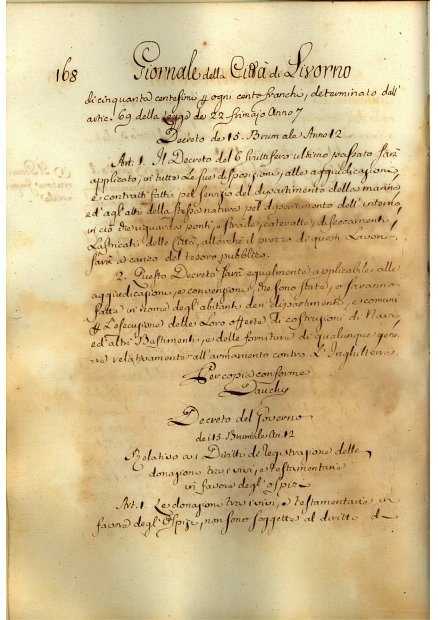 168 Giornale della Città di Livorno
di cinquanta centesimi ogni cento franchi, determinato dall'
artic. 69 della Legge de 22 frimajo Anno 7
Decreto de 15. Brumale Anno 12
Art. 1. Il Decreto del 6 fruttifero ultimo passato sarà
applicato, in tutte le sue disposizioni, alle aggiudicazioni
e contratti fatti pel servizio del dipartimento della marina
ed agl'atti della stessa natura pel dipartimento dell'interno
in ciò che riguarda ponti, e strade, cateratte, diseccamenti
Lastricati delle Città, allorchè il prezzo di questi Lavori
sarà a carico del tesoro pubblico.
2. Questo Decreto sarà egualmente applicabile alle
aggiudicazioni, e convenzioni, che sono state, o saranno
fatte in nome degl'abitanti dei dipartimenti, e comuni
L'esecuzione delle Loro offerte di costruzioni di Navi
ed altri Bastimenti, e delle forniture di qualunque gene-
re relativamente all'armamento contro L'Inghilterra.
Per copia conforme
Dauchy
Decreto del Governo
de i 15. Brumale An. 12
Relativo a i Diritti di registrazione delle
donazioni tra i vivi, e testamentarie
in favore degl'ospizi
Art. 1. Le donazioni tra i vivi, e testamentarie in
favore degl'Ospizi, non sono soggette al diritto d